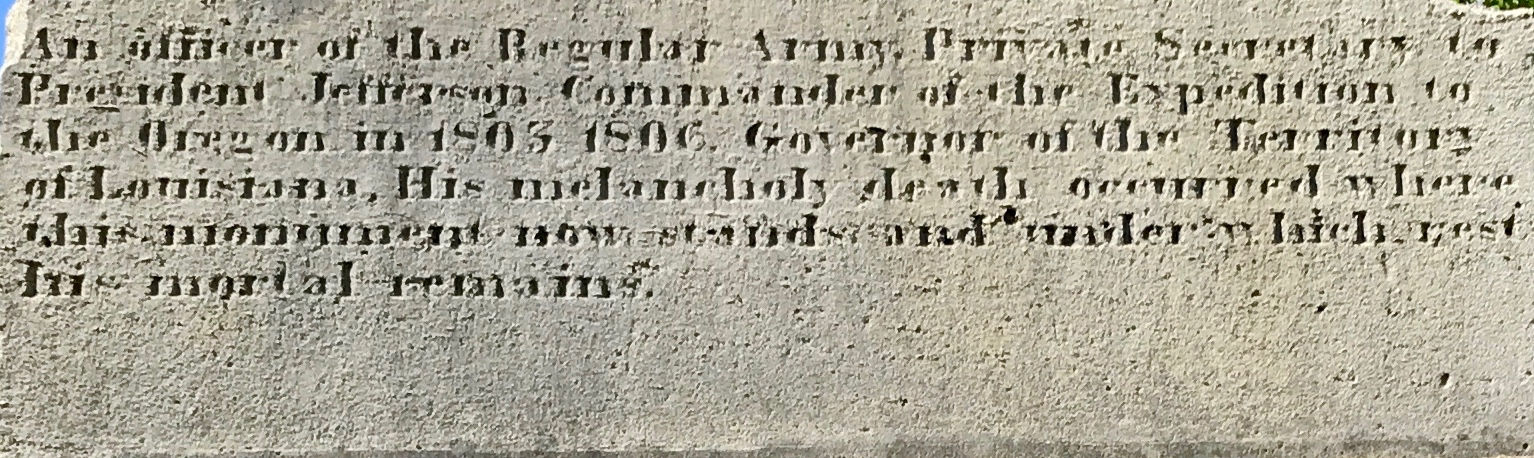 An officer of the Regular Army, Private Secretary to
President Jefferson, Commander of the Expedition to
the Oregon in 1803 1806. Governor of the Territory
of Louisiana, His melancholy death occurred where
this monument now stands and under which rest
his mortal remains.